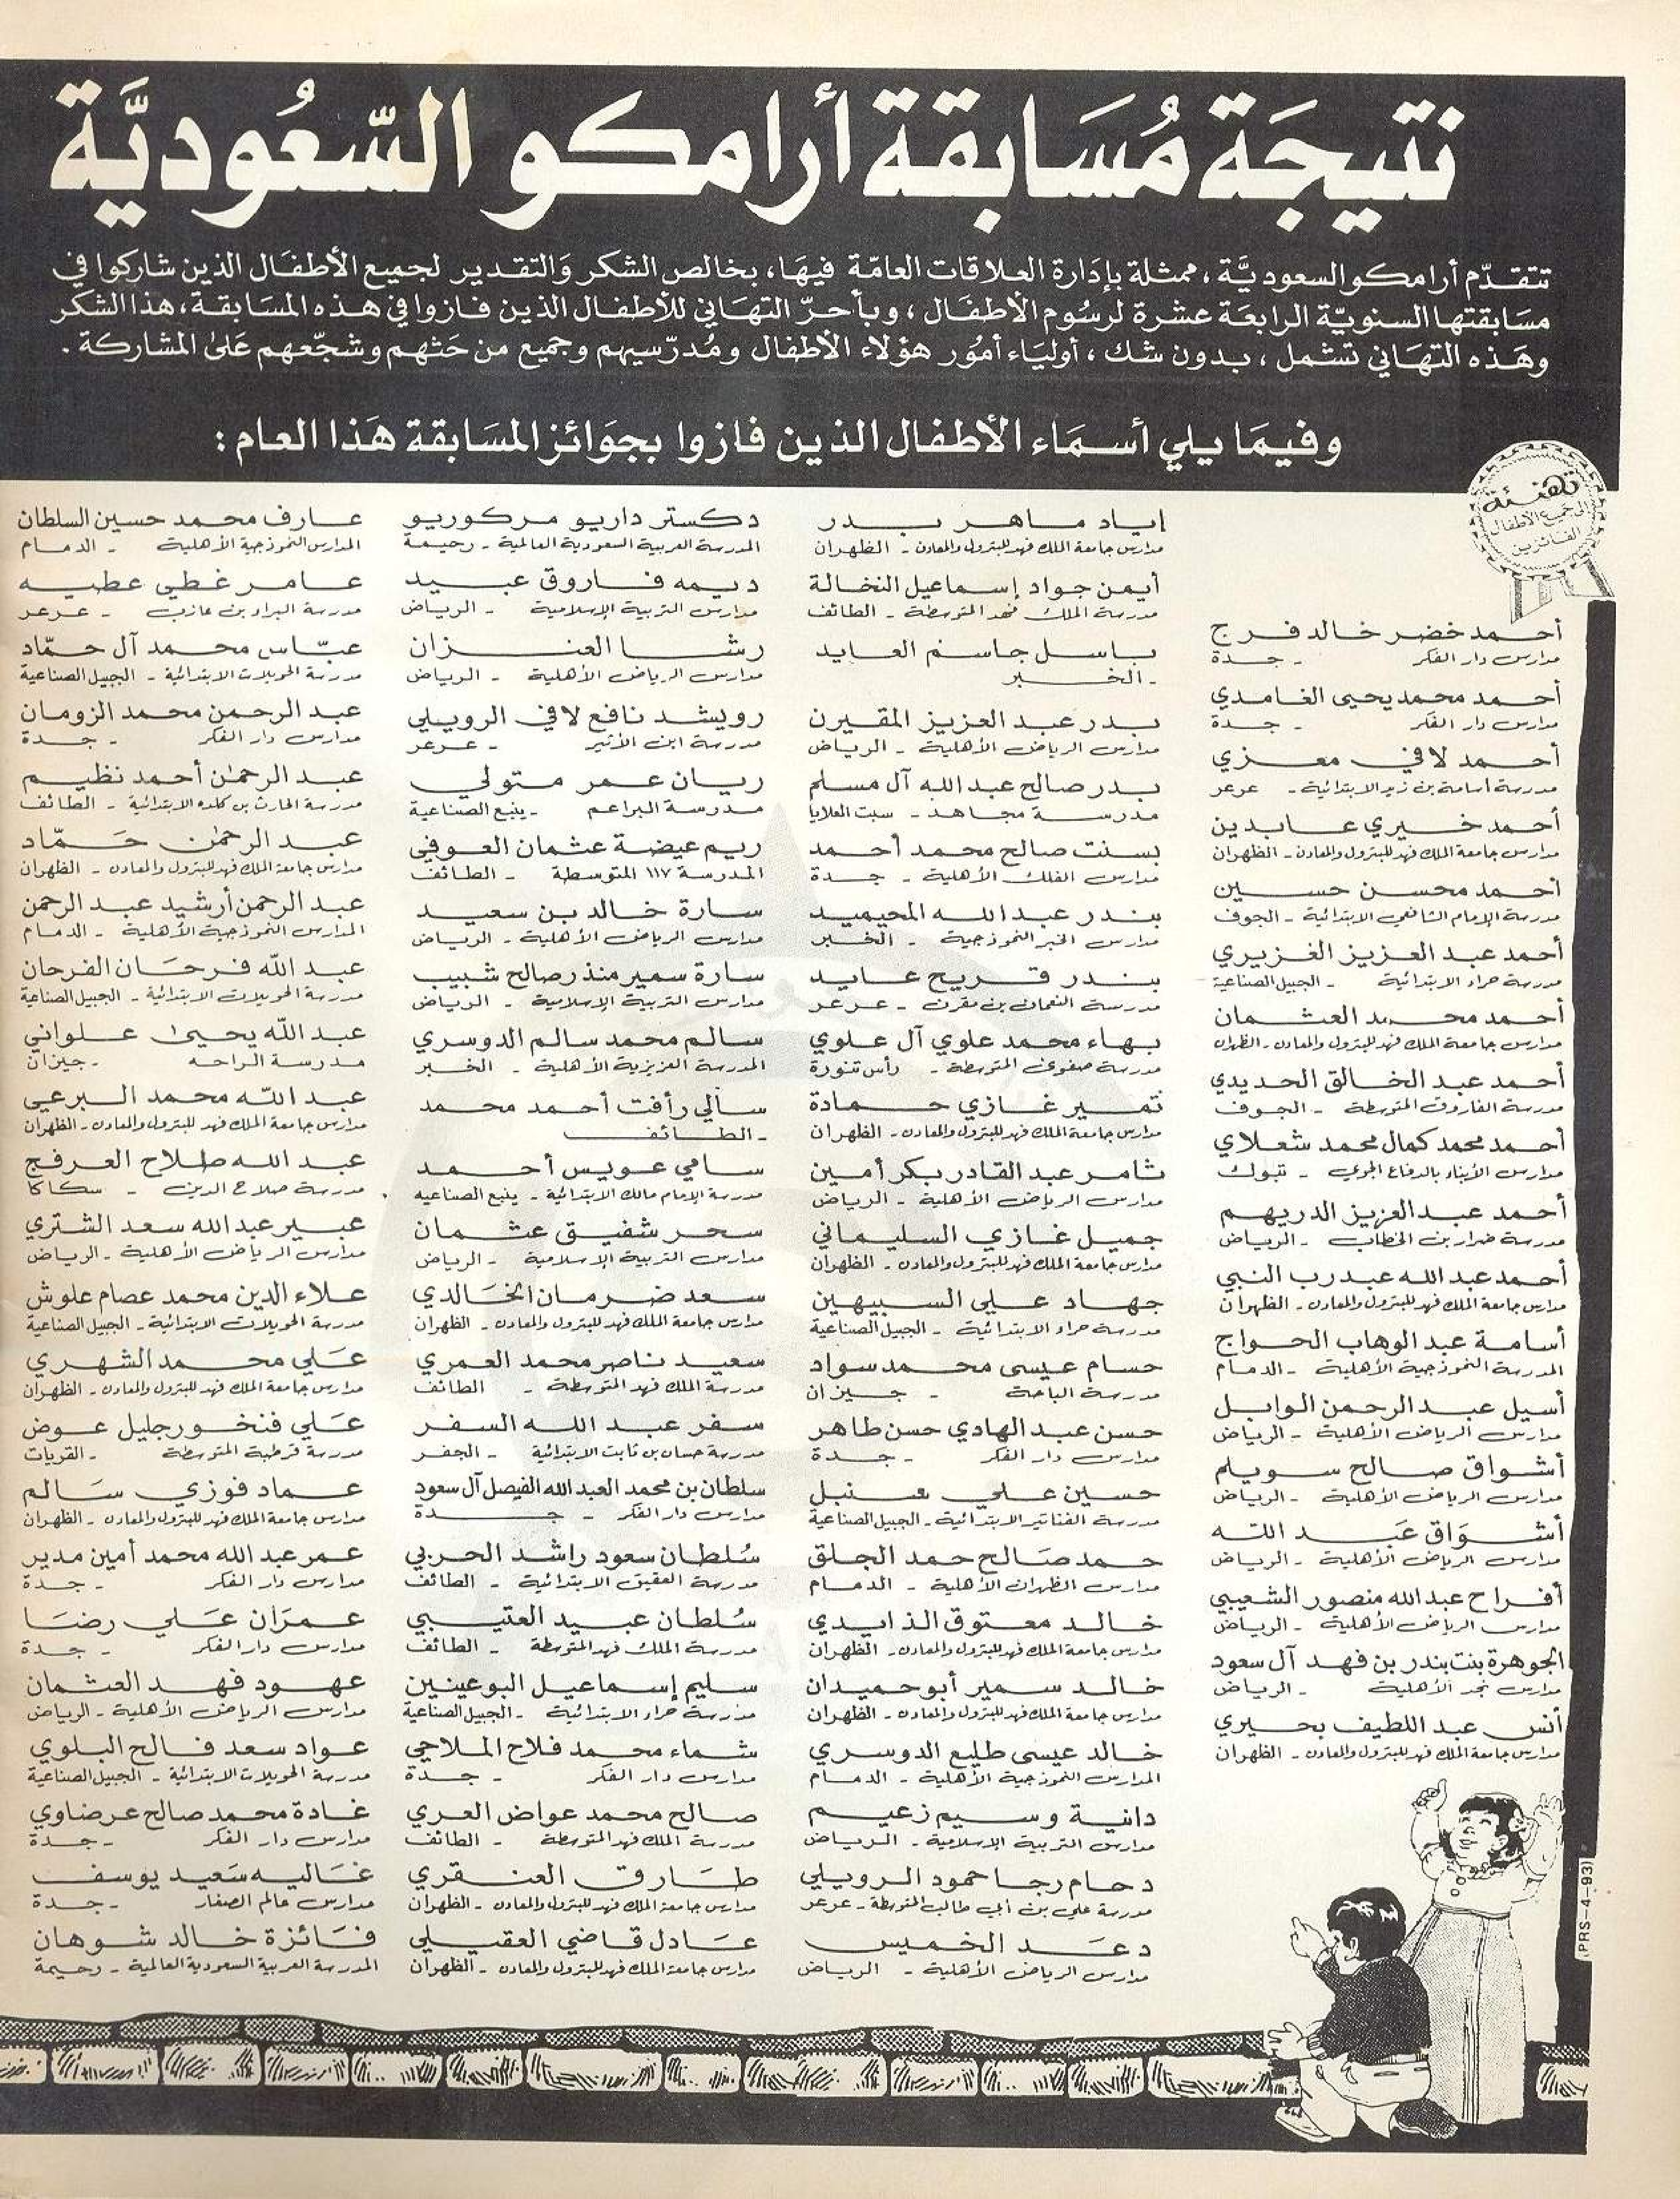 نتيجة مُسَابقة أرامكو السّعُوديَّة
تتقدّم أرامكو السعوديَّة، ممثلة بإدَارة العلاقات العامّة فيهَا، بخالص الشكر وَالتقدير لجميع الأطفَال الذين شاركوا في
مسَابقتها السنويّة الرابعَة عشرة لرسُوم الأطفَال، وبأحرّ التهَاني للأطفَال الذين فازوا في هذه المسَابقة، هذا الشكر
وهَذه التهَاني تشمل، بدون شك، أوليَاء أمُور هؤلاء الأطفال ومُدرّسيهم وجميع من حَثهم وشجّعهم عَلى المشاركة.
وفيمَا يلي أسمَاء الأطفال الذين فازوا بجوَائز المسَابقة هَذا العام:
تهنئة
الى جميع الأطفال
الفائزين
أحمد خضر خالد فرج
مدارس دار الفكر - جدة
أحمد محمد يحيى الغامدي
مدارس دار الفكر - جدة
أحمد لافي معزي
مدرسة أسامة بن زيد الابتدائية - عرعر
أحمد خيري عابدين
مدارس جامعة الملك فهد للبترول والمعادن - الظهران
أحمد محسن حسين
مدرسة الإمام الشافعي الابتدائية - الجوف
أحمد عبد العزيز الغزيري
مدرسة حراء الابتدائية - الجبيل الصناعية
أحمد محمد العثمان
مدارس جامعة الملك فهد للبترول والمعادن - الظهران
أحمد عبد الخالق الحديدي
مدرسة الفاروق المتوسطة - الجوف
أحمد محمد كمال محمد شعلاي
مدارس الأبناء بالدفاع الجوي - تبوك
أحمد عبد العزيز الدريهم
مدرسة ضرار بن الخطاب - الرياض
أحمد عبد الله عبد رب النبي
مدارس جامعة الملك فهد للبترول والمعادن - الظهران
أسامة عبد الوهاب الحواج
المدرسة النموذجية الأهلية - الدمام
أسيل عبد الرحمن الوابل
مدارس الرياض الأهلية - الرياض
أشواق صالح سويلم
مدارس الرياض الأهلية - الرياض
أشوَاق عَبد الله
مدارس الرياض الأهلية - الرياض
أفراح عبد الله منصور الشعيبي
مدارس الرياض الأهلية - الرياض
الجوهرة بنت بندر بن فهد آل سعود
مدارس نجد الأهلية - الرياض
أنس عبد اللطيف بحيري
مدارس جامعة الملك فهد للبترول والمعادن - الظهران
إياد ماهر بدر
مدارس جامعة الملك فهد للبترول والمعادن - الظهران
أيمن جواد إسماعيل النخالة
مدرسة الملك فهد المتوسطة - الطائف
باسل جاسم العايد
- الخبر
بدر عبد العزيز المقيرن
مدارس الرياض الأهلية - الرياض
بدر صالح عبد الله آل مسلم
مدرسة مجاهد - سبت العلايا
بسنت صالح محمد أحمد
مدارس الفلك الأهلية - جدة
بندر عبد الله المحيميد
مدارس الخبر النموذجية - الخبر
بندر فريح عايد
مدرسة النعمان بن مقرن - عرعر
بهاء محمد علوي آل علوي
مدرسة صفوى المتوسطة - رأس تنورة
تمير غازي حمادة
مدارس جامعة الملك فهد للبترول والمعادن - الظهران
ثامر عبد القادر بكر أمين
مدارس الرياض الأهلية - الرياض
جميل غازي السليماني
مدارس جامعة الملك فهد للبترول والمعادن - الظهران
جهاد علي السبيهين
مدرسة حراء الابتدائية - الجبيل الصناعية
حسام عيسى محمد سواد
مدرسة الباحة - جيزان
حسن عبد الهادي حسن طاهر
مدارس دار الفكر - جدة
حسين علي سنبل
مدرسة الفناتير الابتدائية - الجبيل الصناعية
حمد صَالح حمد الجلق
مدارس الظهران الأهلية - الدمام
خالد معتوق الذايدي
مدارس جامعة الملك فهد للبترول والمعادن - الظهران
خالد سمير أبو حميدان
مدارس جامعة الملك فهد للبترول والمعادن - الظهران
خالد عيسى طليع الدوسري
المدارس النموذجية الأهلية - الدمام
دانية وسيم زعيم
مدارس التربية الإسلامية - الرياض
دحام رجا حمود الرويلي
مدرسة علي بن أبي طالب المتوسطة - عرعر
دعَد الخميس
مدارس الرياض الأهلية - الرياض
دكستر داريو مركوريو
المدرسة العربية السعودية العالمية - رحيمة
ديمه فاروق عبيد
مدارس التربية الإسلامية - الرياض
رشا العنزان
مدارس الرياض الأهلية - الرياض
رويشد نافع لافي الرويلي
مدرسة ابن الأثير - عرعر
ريان عمر متولي
مدرسة البراعم - ينبع الصناعية
ريم عيضة عثمان العوفي
المدرسة ١١٧ المتوسطة - الطائف
سارة خالد بن سعيد
مدارس الرياض الأهلية - الرياض
سارة سمير منذر صالح شبيب
مدارس التربية الإسلامية - الرياض
سالم محمد سالم الدوسري
المدرسة العزيزية الأهلية - الخبر
سالي رأفت أحمد محمد
- الطائف
سامي عويس أحمد
مدرسة الإمام مالك الابتدائية - ينبع الصناعيه
سحر شفيق عثمان
مدارس التربية الإسلامية - الرياض
سعد ضرمان الخَالدي
مدارس جامعة الملك فهد للبترول والمعادن - الظهران
سعيد ناصر محمد العمري
مدرسة الملك فهد المتوسطة - الطائف
سفر عبد الله السفر
مدرسة حسان بن ثابت الابتدائية - الجفر
سلطان بن محمد العبد الله الفيصل آل سعود
مدارس دار الفكر - جدة
سُلطان سعود راشد الحربي
مدرسة العقيق الابتدائية - الطائف
سُلطان عبيد العتيبي
مدرسة الملك فهد المتوسطة - الطائف
سليم إسماعيل البوعينين
مدرسة حراء الابتدائية - الجبيل الصناعية
شماء محمد فلاح الملاحي
مدارس دار الفكر - جدة
صالح محمد عواض العري
مدرسة الملك فهد المتوسطة - الطائف
طَارق العنقري
مدارس جامعة الملك فهد للبترول والمعادن - الظهران
عَادل قاضي العقيلي
مدارس جامعة الملك فهد للبترول والمعادن - الظهران
عارف محمد حسين السلطان
المدارس النموذجية الأهلية - الدمام
عامر غطي عطيه
مدرسة البراء بن عازب - عرعر
عبّاس محمد آل حمّاد
مدرسة الحويلات الابتدائية - الجبيل الصناعية
عبد الرحمن محمد الزومان
مدارس دار الفكر - جدة
عبد الرحمٰن أحمد نظيم
مدرسة الحارث بن كلده الابتدائية - الطائف
عبد الرحمٰن حَمّاد
مدارس جامعة الملك فهد للبترول والمعادن - الظهران
عبد الرحمن أرشيد عبد الرحمن
المدارس النموذجية الأهلية - الدمام
عبد الله فرحَان الفرحان
مدرسة الحويلات الابتدائية - الجبيل الصناعية
عبد الله يحيىٰ علواني
مدرسة الراحه - جيزان
عبد الله محمد البرعي
مدارس جامعة الملك فهد للبترول والمعادن - الظهران
عبد الله صلاح العرفج
مدرسة صلاح الدين - سكاكا
عبير عبد الله سعد الشتري
مدارس الرياض الأهلية - الرياض
علاء الدين محمد عصام علوش
مدرسة الحويلات الابتدائية - الجبيل الصناعية
عَلي محمد الشهري
مدارس جامعة الملك فهد للبترول والمعادن - الظهران
عَلي فنخور جليل عوض
مدرسة قرطبة المتوسطة - القريات
عماد فوزي سَالم
مدارس جامعة الملك فهد للبترول والمعادن - الظهران
عمر عبد الله محمد أمين مدير
مدارس دار الفكر - جدة
عمرَان عَلي رضَا
مدارس دار الفكر - جدة
عهود فهد العثمان
مدارس الرياض الأهلية - الرياض
عواد سعد فالح البلوي
مدرسة الحويلات الابتدائية - الجبيل الصناعية
غادة محمد صالح عرضاوي
مدارس دار الفكر - جدة
غَاليه سَعيد يوسف
مدارس عالم الصغار - جدة
فَائزة خالد شوهان
المدرسة العربية السعودية العالمية - رحيمة
(PRS-4-93)